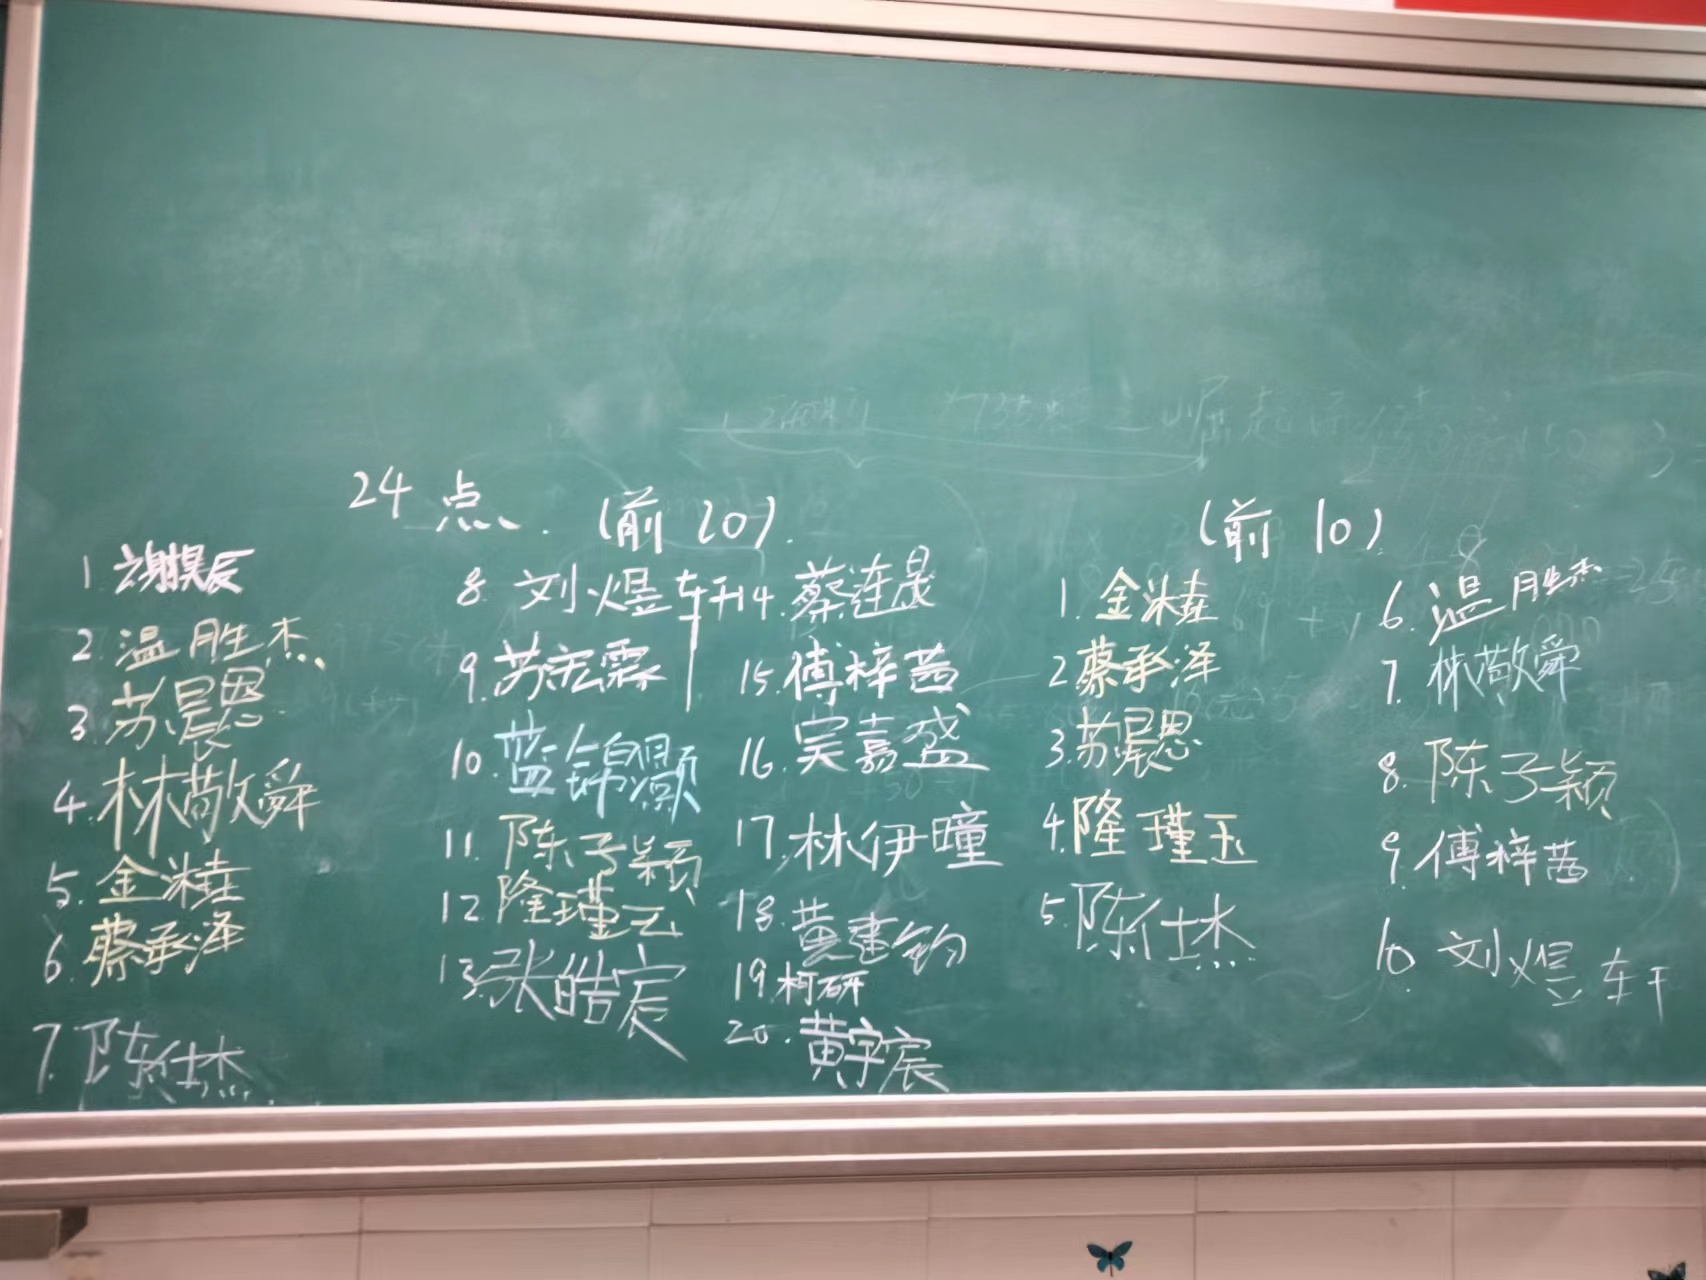 24点 (前20)
1 谢昊辰
2. 温胜杰
3. 苏晨恩
4. 林敬舜
5. 金沐垚
6. 蔡承泽
7. 陈仕杰
8. 刘煜轩
9. 苏宏霖
10. 蓝锦灏
11. 陈子颖
12. 隆瑾玉
13. 张皓宸
14. 蔡连晟
15. 傅梓茜
16. 吴嘉盛
17. 林伊曈
18. 黄建钧
19. 柯研
20. 黄宇宸
(前10)
1. 金沐垚
2 蔡承泽
3. 苏晨恩
4. 隆瑾玉
5. 陈仕杰
6. 温胜杰
7. 林敬舜
8. 陈子颖
9. 傅梓茜
10. 刘煜轩